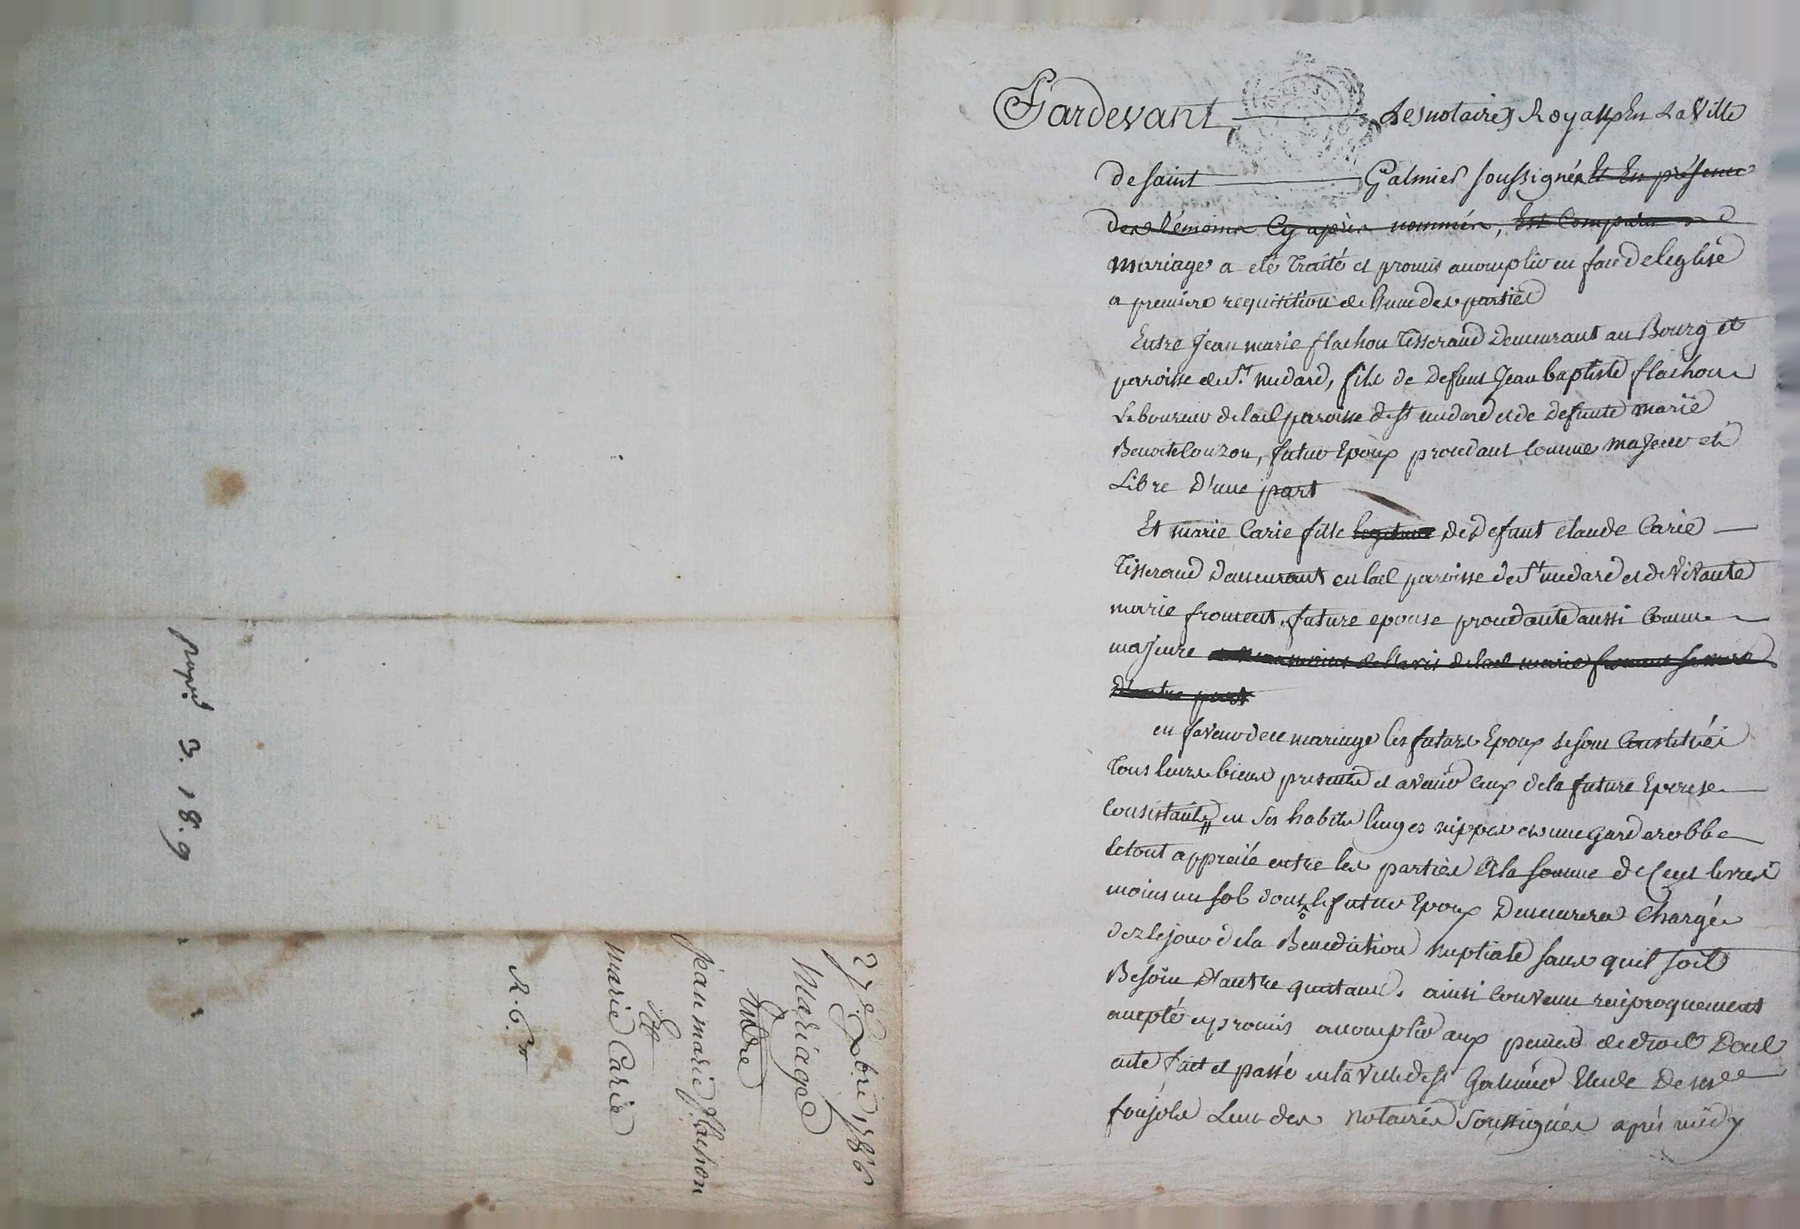 Pardevant Les notaires Royaux En La Ville
de saint Galmier soussignés Et En présence
des témoins Cy après nommés, Est Comparu
mariage a eté traité et promis accomplir en face de leglise
a premiere requisition de lune des parties
Entre Jean marie flachon tisserand demeurant au Bourg et
paroisse de st. medard, fils de defunt Jean baptiste flachon
Laboureur de lad paroisse de st medard et de defunte marie
Benoite Couzon, futur Epoux procedant comme majeur et
Libre d'une part
Et marie Carie fille legitime de defunt claude Carie
tisserand demeurant en lad paroisse de st medard et de vivante
marie froment, future epouse procedante aussi comme
majeure de lavis de lad marie froment sa mere
d'autre part
en faveur de ce mariage les futurs Epoux se sont constitués
tous leurs biens presents et avenir ceux de la future Epouse
consistants en ses habits linges nippes et une garderobbe
le tout apprecié entre les parties a la somme de Cent livres
moins un sol dont le futur Epoux demeurera chargé
dez le jour de la Benediction nuptiale sans quil soit
Besoin d'autre quittance. ainsi convenu reciproquement
accepté et promis accomplir aux peines de droit Dont
acte fait et passé en la ville de st Galmier Etude de me
foujols Lun des notaires soussignés après midy
27e. 9bre 1786
Mariage
Entre
Jean marie flachon
Et
marie Carie
R. 6.
papr. 3. 18. 9